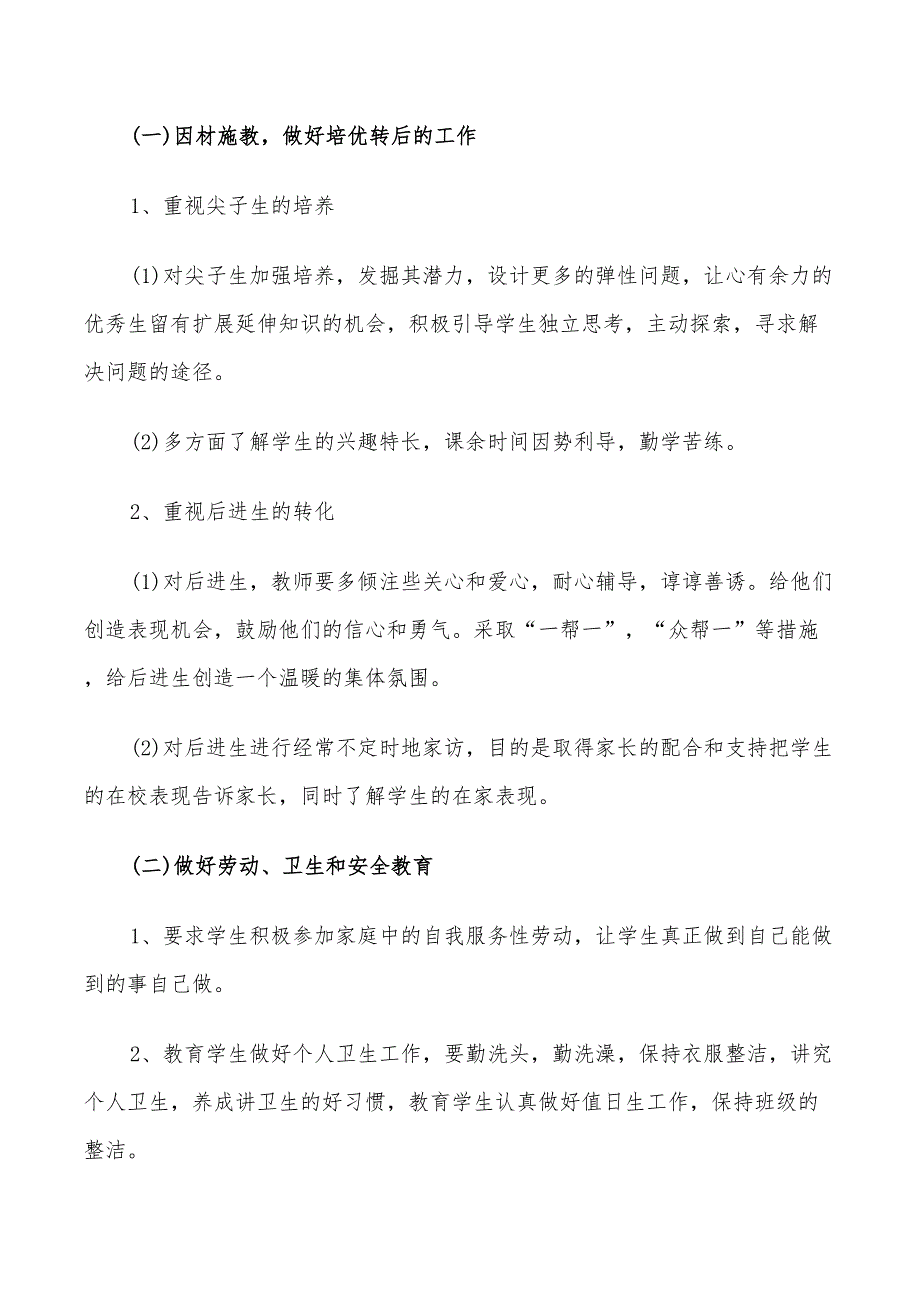 (一)因材施教，做好培优转后的工作
1、重视尖子生的培养
(1)对尖子生加强培养，发掘其潜力，设计更多的弹性问题，让心有余力的
优秀生留有扩展延伸知识的机会，积极引导学生独立思考，主动探索，寻求解
决问题的途径。
(2)多方面了解学生的兴趣特长，课余时间因势利导，勤学苦练。
2、重视后进生的转化
(1)对后进生，教师要多倾注些关心和爱心，耐心辅导，谆谆善诱。给他们
创造表现机会，鼓励他们的信心和勇气。采取“一帮一”，“众帮一”等措施
，给后进生创造一个温暖的集体氛围。
(2)对后进生进行经常不定时地家访，目的是取得家长的配合和支持把学生
的在校表现告诉家长，同时了解学生的在家表现。
(二)做好劳动、卫生和安全教育
1、要求学生积极参加家庭中的自我服务性劳动，让学生真正做到自己能做
到的事自己做。
2、教育学生做好个人卫生工作，要勤洗头，勤洗澡，保持衣服整洁，讲究
个人卫生，养成讲卫生的好习惯，教育学生认真做好值日生工作，保持班级的
整洁。